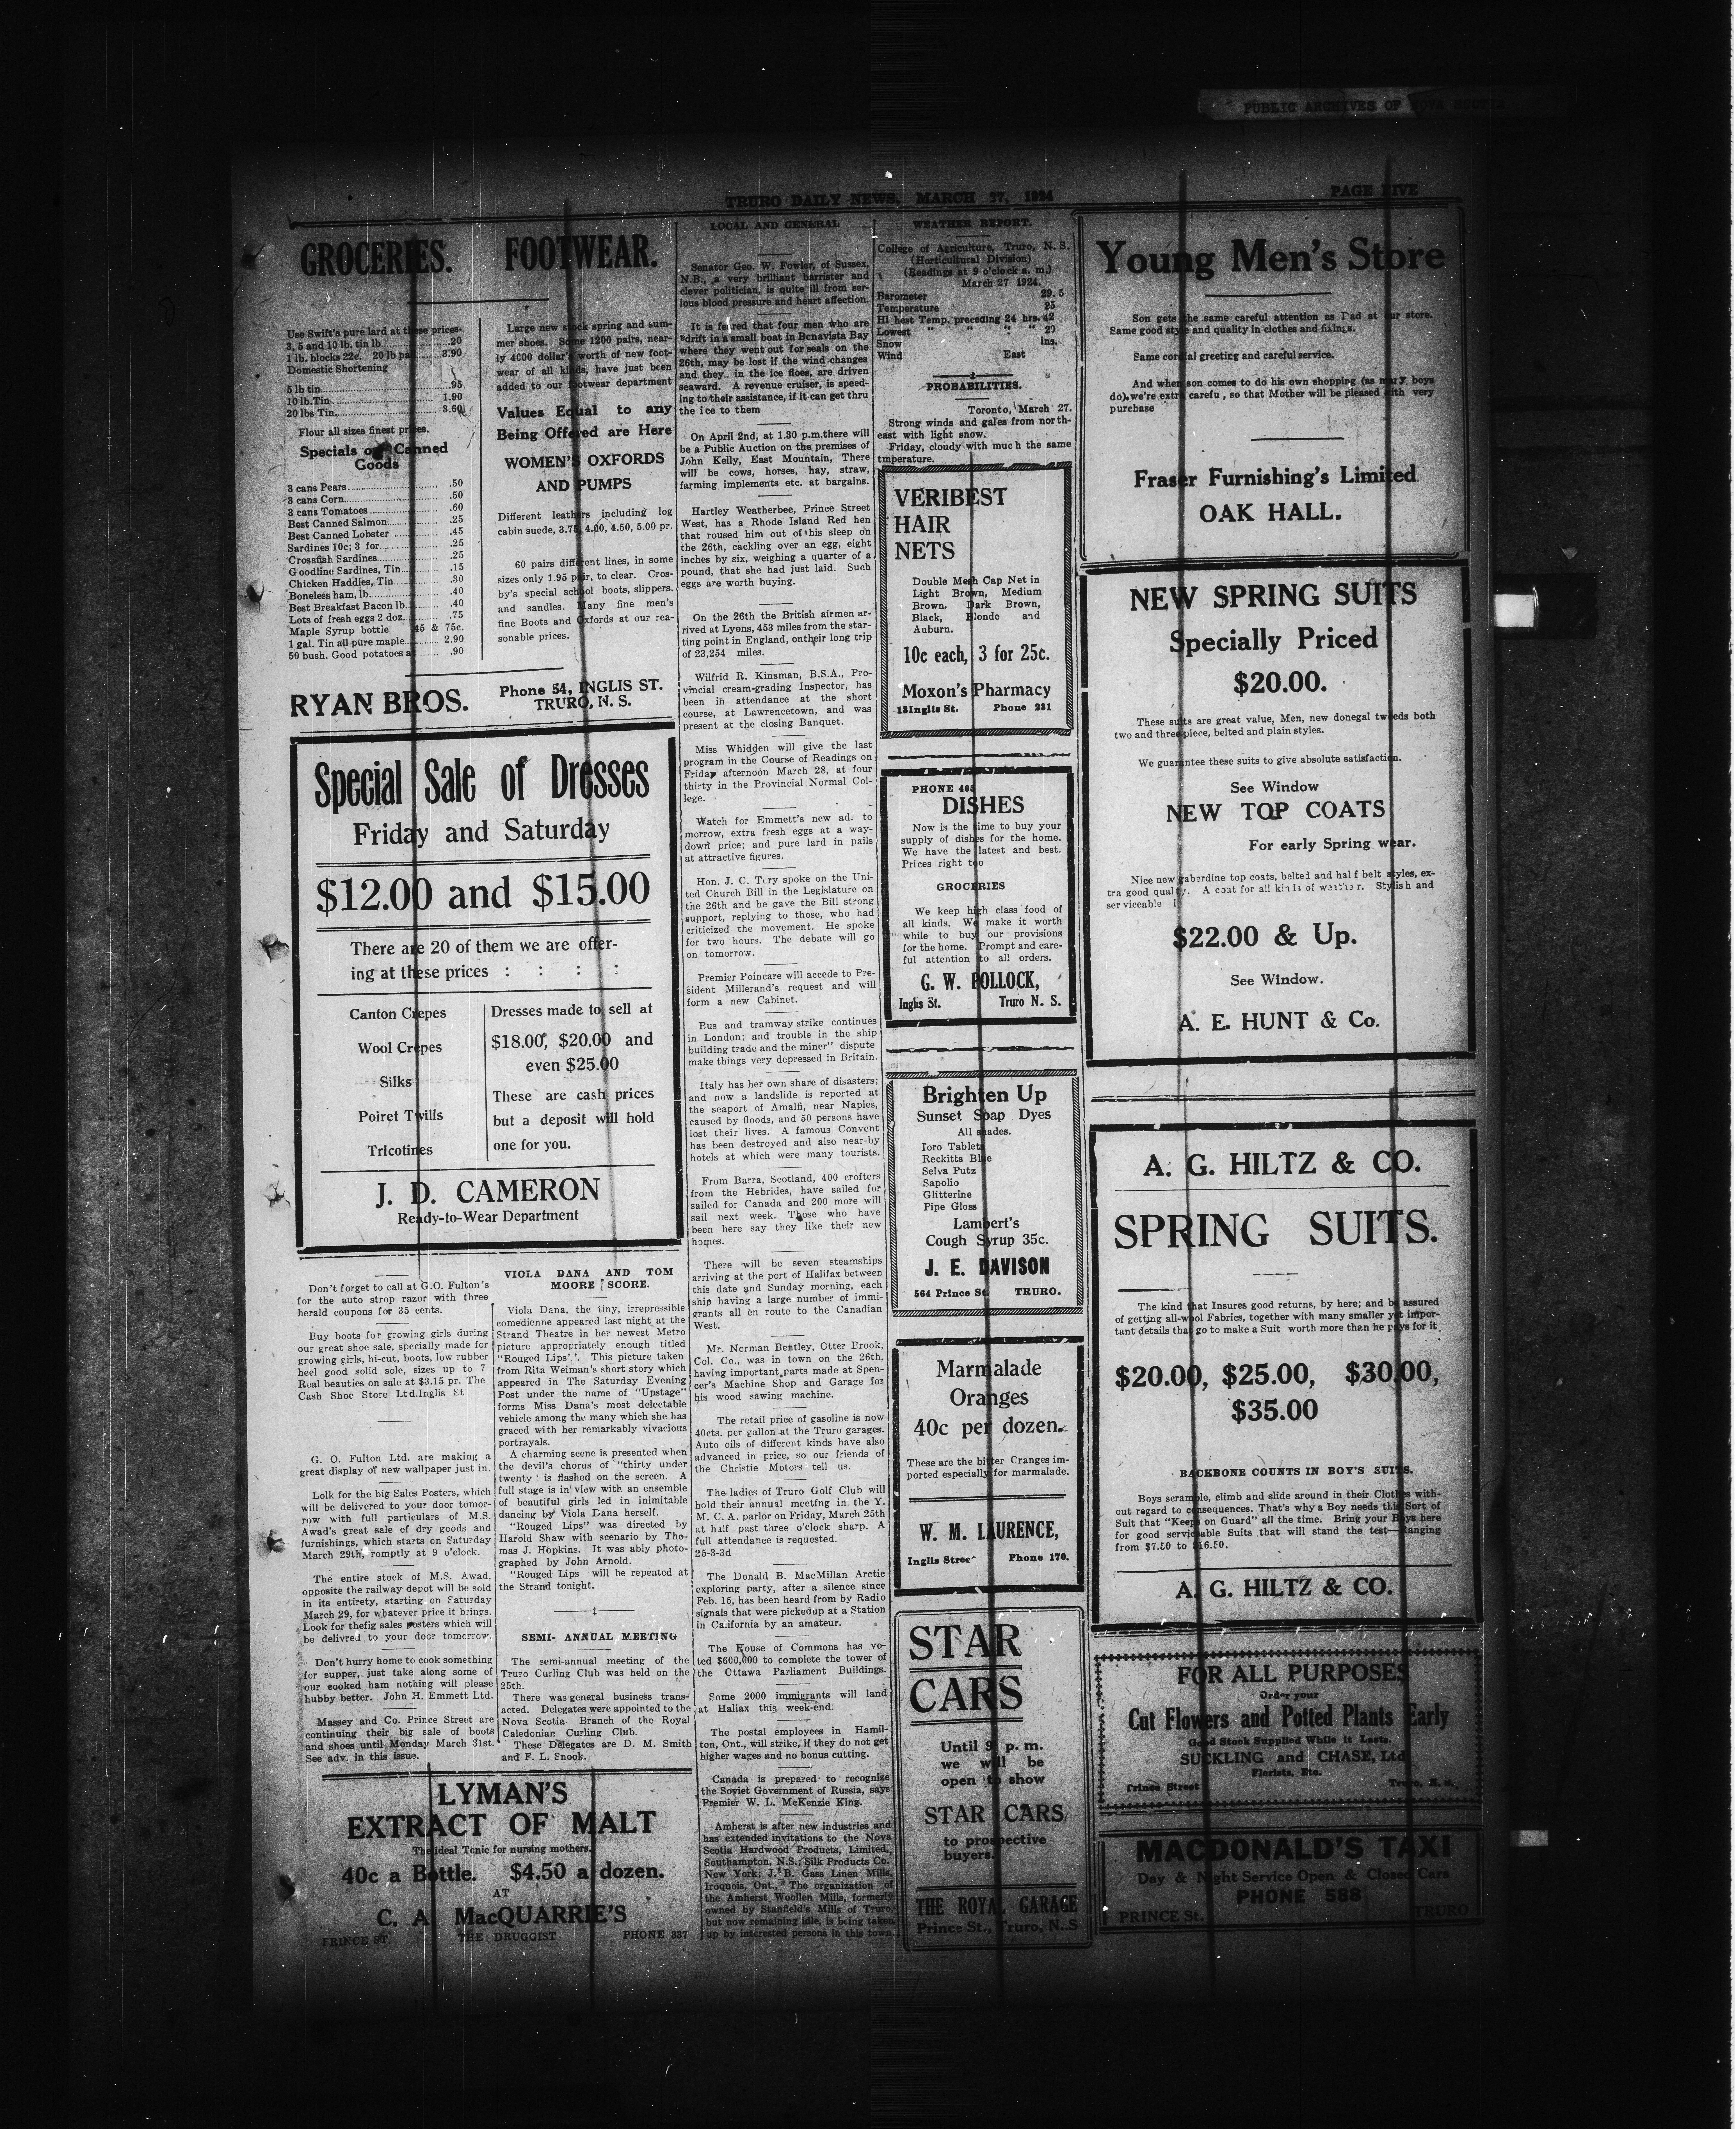 PUBLIC ARCHIVES OF NOVA SCOTIA
TRURO DAILY NEWS, MARCH 27, 1924
PAGE FIVE
GROCERIES.
Use Swift's pure lard at these prices.
3, 5 and 10 lb. tin lb. .20
1 lb. blocks 22c. 20 lb pa 3.90
Domestic Shortening
5 lb tin .95
10 lb. Tin 1.90
20 lbs Tin 3.60
Flour all sizes finest prices.
Specials of Canned
Goods
3 cans Pears .50
3 cans Corn .50
3 cans Tomatoes .60
Best Canned Salmon .25
Best Canned Lobster .45
Sardines 10c; 3 for .25
Crossfish Sardines .25
Goodline Sardines, Tin .15
Chicken Haddies, Tin .30
Boneless ham, lb. .40
Best Breakfast Bacon lb. .40
Lots of fresh eggs 2 doz. .75
Maple Syrup bottle 45 & 75c.
1 gal. Tin all pure maple 2.90
50 bush. Good potatoes a .90
FOOTWEAR.
Large new stock spring and sum-
mer shoes. Some 1200 pairs, near-
ly 4000 dollar's worth of new foot-
wear of all kinds, have just been
added to our footwear department
Values Equal to any
Being Offered are Here
WOMEN'S OXFORDS
AND PUMPS
Different leathers including log
cabin suede, 3.75, 4.00, 4.50, 5.00 pr.
60 pairs different lines, in some
sizes only 1.95 pair, to clear. Cros-
by's special school boots, slippers,
and sandles. Many fine men's
fine Boots and Oxfords at our rea-
sonable prices.
RYAN BROS.
Phone 54, INGLIS ST.
TRURO, N. S.
Special Sale of Dresses
Friday and Saturday
$12.00 and $15.00
There are 20 of them we are offer-
ing at these prices : : : :
Canton Crepes
Wool Crepes
Silks
Poiret Twills
Tricotines
Dresses made to sell at
$18.00, $20.00 and
even $25.00
These are cash prices
but a deposit will hold
one for you.
J. D. CAMERON
Ready-to-Wear Department
Don't forget to call at G.O. Fulton's
for the auto strop razor with three
herald coupons for 35 cents.
Buy boots for growing girls during
our great shoe sale, specially made for
growing girls, hi-cut, boots, low rubber
heel good solid sole, sizes up to 7
Real beauties on sale at $3.15 pr. The
Cash Shoe Store Ltd.Inglis St
G. O. Fulton Ltd. are making a
great display of new wallpaper just in.
Lolk for the big Sales Posters, which
will be delivered to your door tomor-
row with full particulars of M.S.
Awad's great sale of dry goods and
furnishings, which starts on Saturday
March 29th, romptly at 9 o'clock.
The entire stock of M.S. Awad,
opposite the railway depot will be sold
in its entirety, starting on Saturday
March 29, for whatever price it brings.
Look for thefig sales posters which will
be delivred to your door tomorrow.
Don't hurry home to cook something
for supper, just take along some of
our cooked ham nothing will please
hubby better. John H. Emmett Ltd.
Massey and Co. Prince Street are
continuing their big sale of boots
and shoes until Monday March 31st.
See adv. in this issue.
VIOLA DANA AND TOM
MOORE SCORE.
Viola Dana, the tiny, irrepressible
comedienne appeared last night at the
Strand Theatre in her newest Metro
picture appropriately enough titled
"Rouged Lips". This picture taken
from Rita Weiman's short story which
appeared in The Saturday Evening
Post under the name of "Upstage"
forms Miss Dana's most delectable
vehicle among the many which she has
graced with her remarkably vivacious
portrayals.
A charming scene is presented when
the devil's chorus of "thirty under
twenty' is flashed on the screen. A
full stage is in view with an ensemble
of beautiful girls led in inimitable
dancing by Viola Dana herself.
"Rouged Lips" was directed by
Harold Shaw with scenario by Tho-
mas J. Hopkins. It was ably photo-
graphed by John Arnold.
"Rouged Lips will be repeated at
the Strand tonight.
SEMI- ANNUAL MEETING
The semi-annual meeting of the
Truro Curling Club was held on the
25th.
There was general business trans-
acted. Delegates were appointed to the
Nova Scotia Branch of the Royal
Caledonian Curling Club.
These Delegates are D. M. Smith
and F. L. Snook.
LYMAN'S
EXTRACT OF MALT
The ideal Tonic for nursing mothers.
40c a Bottle. $4.50 a dozen.
AT
C. A. MacQUARRIE'S
PRINCE ST. THE DRUGGIST PHONE 337
LOCAL AND GENERAL
Senator Geo. W. Fowler, of Sussex,
N.B., a very brilliant barrister and
clever politician, is quite ill from ser-
ious blood pressure and heart affection.
It is feared that four men who are
adrift in a small boat in Bonavista Bay
where they went out for seals on the
26th, may be lost if the wind changes
and they.. in the ice floes, are driven
seaward. A revenue cruiser, is speed-
ing to their assistance, if it can get thru
the ice to them
On April 2nd, at 1.30 p.m.there will
be a Public Auction on the premises of
John Kelly, East Mountain, There
will be cows, horses, hay, straw,
farming implements etc. at bargains.
Hartley Weatherbee, Prince Street
West, has a Rhode Island Red hen
that roused him out of his sleep on
the 26th, cackling over an egg, eight
inches by six, weighing a quarter of a
pound, that she had just laid. Such
eggs are worth buying.
On the 26th the British airmen ar-
rived at Lyons, 453 miles from the star-
ting point in England, ontheir long trip
of 23,254 miles.
Wilfrid R. Kinsman, B.S.A., Pro-
vincial cream-grading Inspector, has
been in attendance at the short
course, at Lawrencetown, and was
present at the closing Banquet.
Miss Whidden will give the last
program in the Course of Readings on
Friday afternoon March 28, at four
thirty in the Provincial Normal Col-
lege.
Watch for Emmett's new ad. to
morrow, extra fresh eggs at a way-
down price; and pure lard in pails
at attractive figures.
Hon. J. C. Tory spoke on the Uni-
ted Church Bill in the Legislature on
the 26th and he gave the Bill strong
support, replying to those, who had
criticized the movement. He spoke
for two hours. The debate will go
on tomorrow.
Premier Poincare will accede to Pre-
sident Millerand's request and will
form a new Cabinet.
Bus and tramway strike continues
in London; and trouble in the ship
building trade and the miner" dispute
make things very depressed in Britain.
Italy has her own share of disasters;
and now a landslide is reported at
the seaport of Amalfi, near Naples,
caused by floods, and 50 persons have
lost their lives. A famous Convent
has been destroyed and also near-by
hotels at which were many tourists.
From Barra, Scotland, 400 crofters
from the Hebrides, have sailed for
sailed for Canada and 200 more will
sail next week. Those who have
been here say they like their new
homes.
There will be seven steamships
arriving at the port of Halifax between
this date and Sunday morning, each
ship having a large number of immi-
grants all en route to the Canadian
West.
Mr. Norman Bentley, Otter Brook,
Col. Co., was in town on the 26th,
having important parts made at Spen-
cer's Machine Shop and Garage for
his wood sawing machine.
The retail price of gasoline is now
40cts. per gallon at the Truro garages.
Auto oils of different kinds have also
advanced in price, so our friends of
the Christie Motors tell us.
The ladies of Truro Golf Club will
hold their annual meeting in the Y.
M. C. A. parlor on Friday, March 25th
at half past three o'clock sharp. A
full attendance is requested.
25-3-3d
The Donald B. MacMillan Arctic
exploring party, after a silence since
Feb. 15, has been heard from by Radio
signals that were pickedup at a Station
in California by an amateur.
The House of Commons has vo-
ted $600,000 to complete the tower of
the Ottawa Parliament Buildings.
Some 2000 immigrants will land
at Haliax this week-end.
The postal employees in Hamil-
ton, Ont., will strike, if they do not get
higher wages and no bonus cutting.
Canada is prepared to recognize
the Soviet Government of Russia, says
Premier W. L. McKenzie King.
Amherst is after new industries and
has extended invitations to the Nova
Scotia Hardwood Products, Limited,
Southampton, N.S.; Silk Products Co.
New York; J. B. Gass Linen Mills,
Iroquois, Ont., The organization of
the Amherst Woollen Mills, formerly
owned by Stanfield's Mills of Truro,
but now remaining idle, is being taken
up by interested persons in this town.
WEATHER REPORT.
College of Agriculture, Truro, N. S.
(Horticultural Division)
(Readings at 9 o'clock a. m.)
March 27 1924.
Barometer 29.5
Temperature 25
Hi hest Temp. preceding 24 hrs. 42
Lowest " " " " 20
Snow Ins.
Wind East
PROBABILITIES.
Toronto, March 27.
Strong winds and gales from north-
east with light snow.
Friday, cloudy with much the same
tmperature.
VERIBEST
HAIR
NETS
Double Mesh Cap Net in
Light Brown, Medium
Brown, Dark Brown,
Black, Blonde and
Auburn.
10c each, 3 for 25c.
Moxon's Pharmacy
13 Inglis St. Phone 231
PHONE 405
DISHES
Now is the time to buy your
supply of dishes for the home.
We have the latest and best.
Prices right too
GROCERIES
We keep high class food of
all kinds. We make it worth
while to buy our provisions
for the home. Prompt and care-
ful attention to all orders.
G. W. POLLOCK,
Inglis St. Truro N. S.
Brighten Up
Sunset Soap Dyes
All shades.
Ioro Tablets
Reckitts Blue
Selva Putz
Sapolio
Glitterine
Pipe Gloss
Lambert's
Cough Syrup 35c.
J. E. DAVISON
564 Prince St. TRURO.
Marmalade
Oranges
40c per dozen.
These are the bitter Oranges im-
ported especially for marmalade.
W. M. LAURENCE,
Inglis Street Phone 170.
STAR
CARS
Until 9 p. m.
we will be
open to show
STAR CARS
to prospective
buyers.
THE ROYAL GARAGE
Prince St., Truro, N..S
Young Men's Store
Son gets the same careful attention as Dad at our store.
Same good style and quality in clothes and fixings.
Same cordial greeting and careful service.
And when son comes to do his own shopping (as many boys
do), we're extra carefu , so that Mother will be pleased with very
purchase
Fraser Furnishing's Limited
OAK HALL.
NEW SPRING SUITS
Specially Priced
$20.00.
These suits are great value, Men, new donegal tweeds both
two and three piece, belted and plain styles.
We guarantee these suits to give absolute satisfaction.
See Window
NEW TOP COATS
For early Spring wear.
Nice new gaberdine top coats, belted and half belt styles, ex-
tra good quality. A coat for all kinds of weather. Stylish and
serviceable
$22.00 & Up.
See Window.
A. E. HUNT & Co.
A. G. HILTZ & CO.
SPRING SUITS.
The kind that Insures good returns, by here; and be assured
of getting all-wool Fabrics, together with many smaller yet impor-
tant details that go to make a Suit worth more than he pays for it
$20.00, $25.00, $30.00,
$35.00
BACKBONE COUNTS IN BOY'S SUITS.
Boys scramble, climb and slide around in their Clothes with-
out regard to consequences. That's why a Boy needs this Sort of
Suit that "Keeps on Guard" all the time. Bring your Boys here
for good servicable Suits that will stand the test—Ranging
from $7.50 to $16.50.
A. G. HILTZ & CO.
FOR ALL PURPOSES
Order your
Cut Flowers and Potted Plants Early
Good Stock Supplied While it Lasts.
SUCKLING and CHASE, Ltd
Florists, Etc.
Prince Street Truro, N. S.
MACDONALD'S TAXI
Day & Night Service Open & Closed Cars
PHONE 588
PRINCE St. TRURO